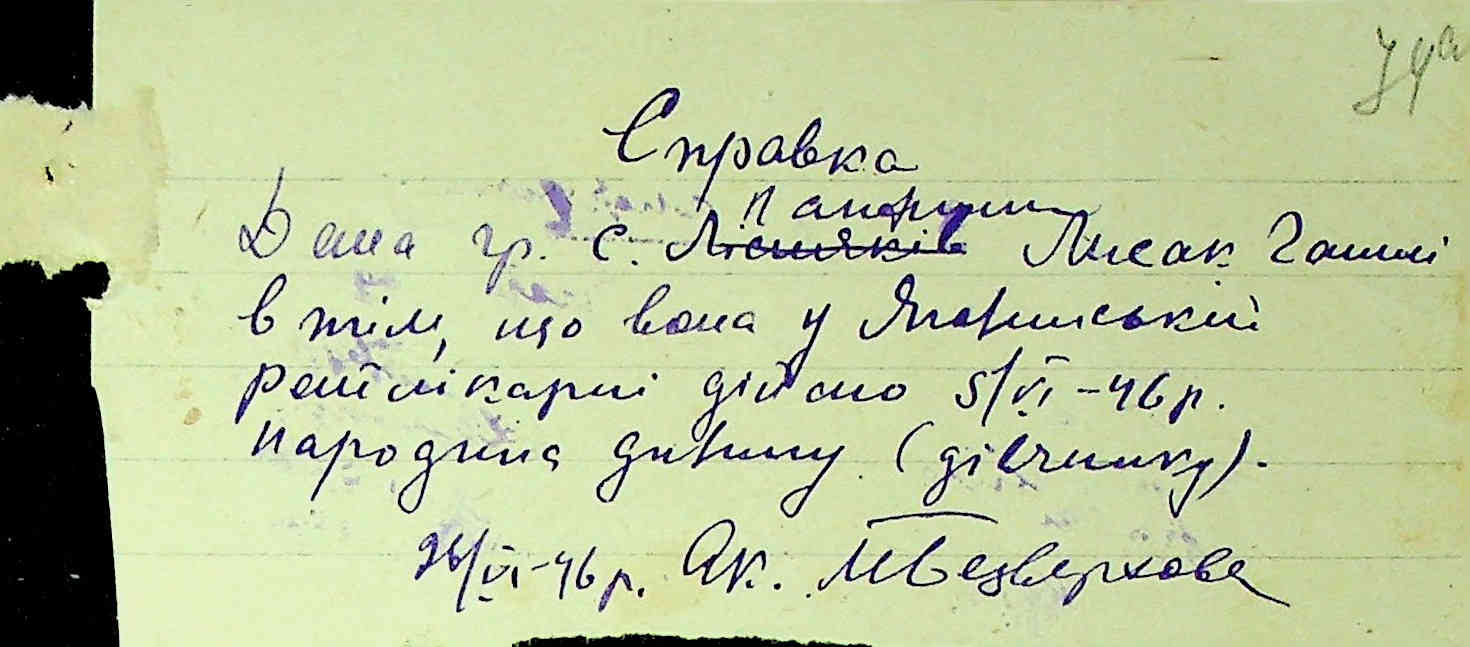 74а
Справка
Панфили
Дана гр. с. Лісняків Лисак Ганні
в тім, що вона у Яготинській
райлікарні дійсно 5/VI-46 р.
народила дитину (дівчинку).
26/VI-46 р. Ак. МБезверхова